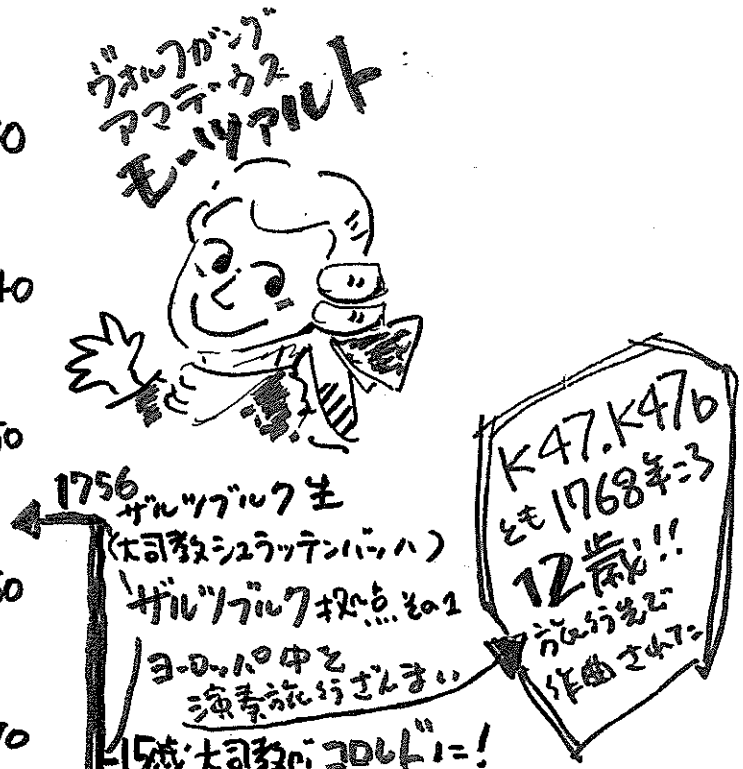 ヴォルフガング
アマデウス
モーツァルト
40
50
1756
ザルツブルク生
(大司教シュラッテンバッハ)
ザルツブルク拠点その1
ヨーロッパ中を
演奏旅行ざんまい
15歳:大司教がコロレドに!
K47.K47b
とも1768年ころ
12歳!!
旅行先で
作曲された